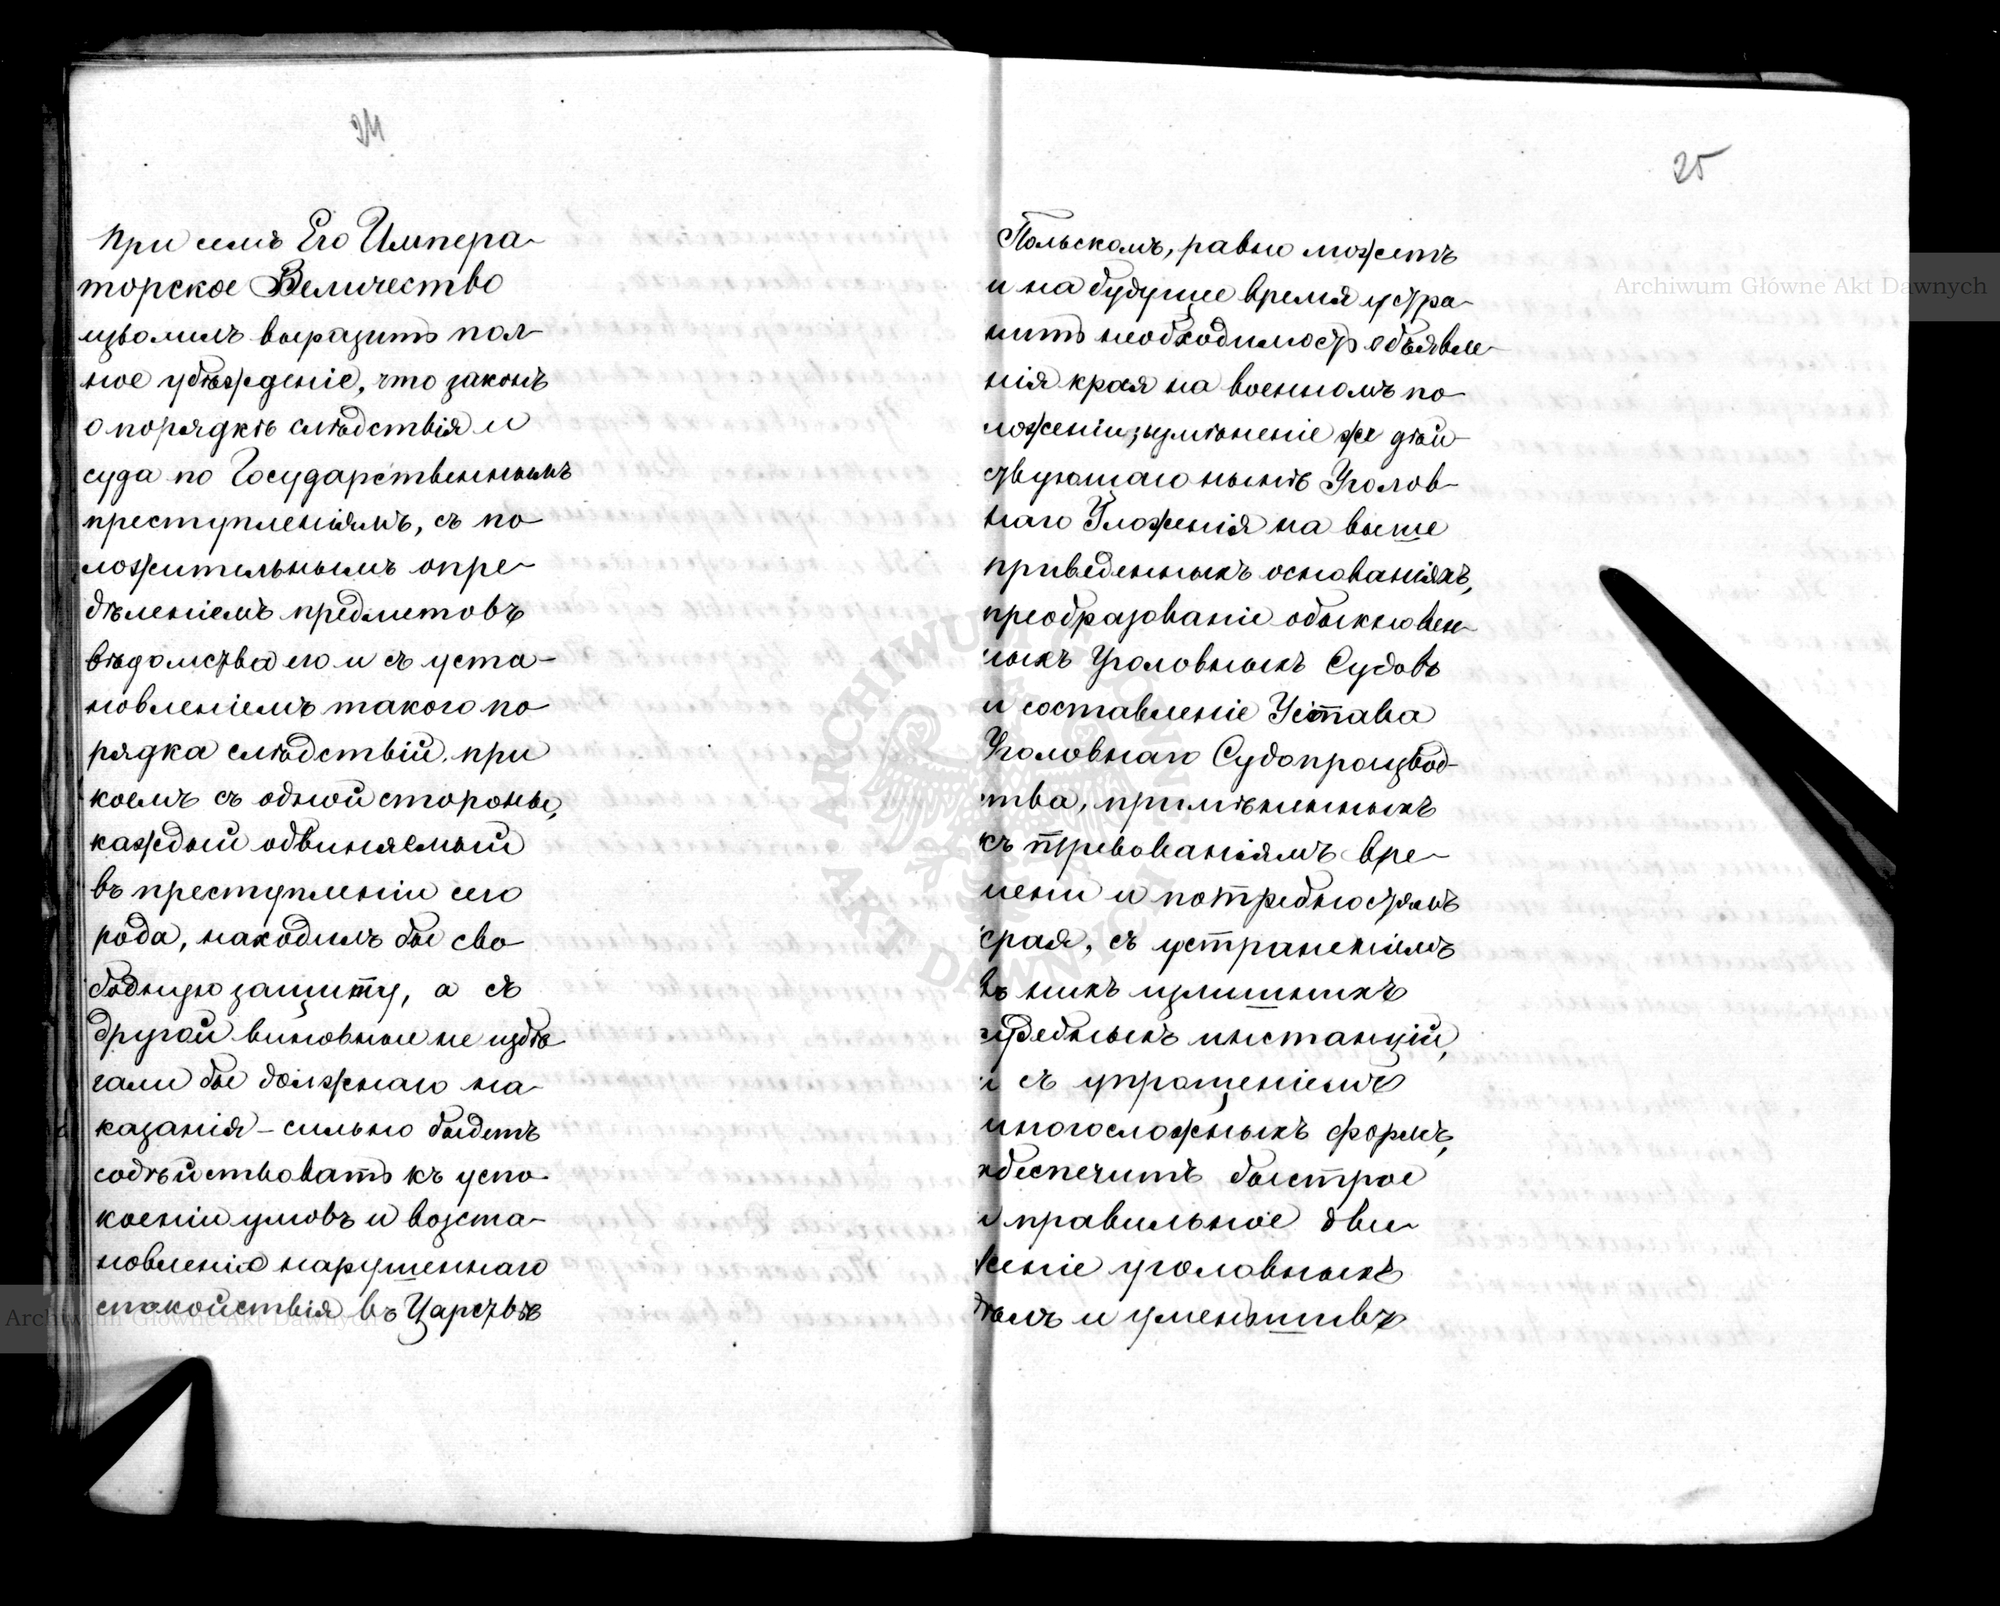 24
При семъ Его Импера-
торское Величество
изволилъ выразить пол-
ное убѣжденіе, что законъ
о порядкѣ слѣдствія и
суда по Государственнымъ
преступленіямъ, съ по
ложительнымъ опре-
дѣленіемъ предметовъ
вѣдомства его и съ уста-
новленіемъ такого по
рядка слѣдствій, при
коемъ съ одной стороны,
каждый обвиняемый
въ преступленіи сего
рода, находилъ бы сво
бодную защиту, а съ
другой виновные не избѣ
гали бы должнаго на-
казанія - сильно будетъ
содѣйствовать къ успо
коенію умовъ и возста-
новленію нарушеннаго
спокойствія въ Царствѣ
25
Польскомъ, равно можетъ
и на будущее время устра-
нить необходимость объявле-
нія края на военномъ по
ложеніи; измѣненіе же дѣй-
ствующаго нынѣ Уголов-
наго Уложенія на выше
приведенныхъ основаніяхъ,
преобразованіе обыкновен-
ныхъ Уголовныхъ Судовъ
и составленіе Устава
Уголовнаго Судопроизвод-
тва, примѣненныхъ
къ требованіямъ вре-
мени и потребностямъ
края, съ устраненіемъ
въ нихъ излишнихъ
судебныхъ инстанцій,
и съ упрощеніемъ
многосложныхъ формъ,
обеспечитъ быстрое
и правильное дви-
женіе уголовныхъ
дѣлъ и уменьшивъ
Archiwum Główne Akt Dawnych
Archiwum Główne Akt Dawnych
ARCHIWUM GŁÓWNE
AKT DAWNYCH